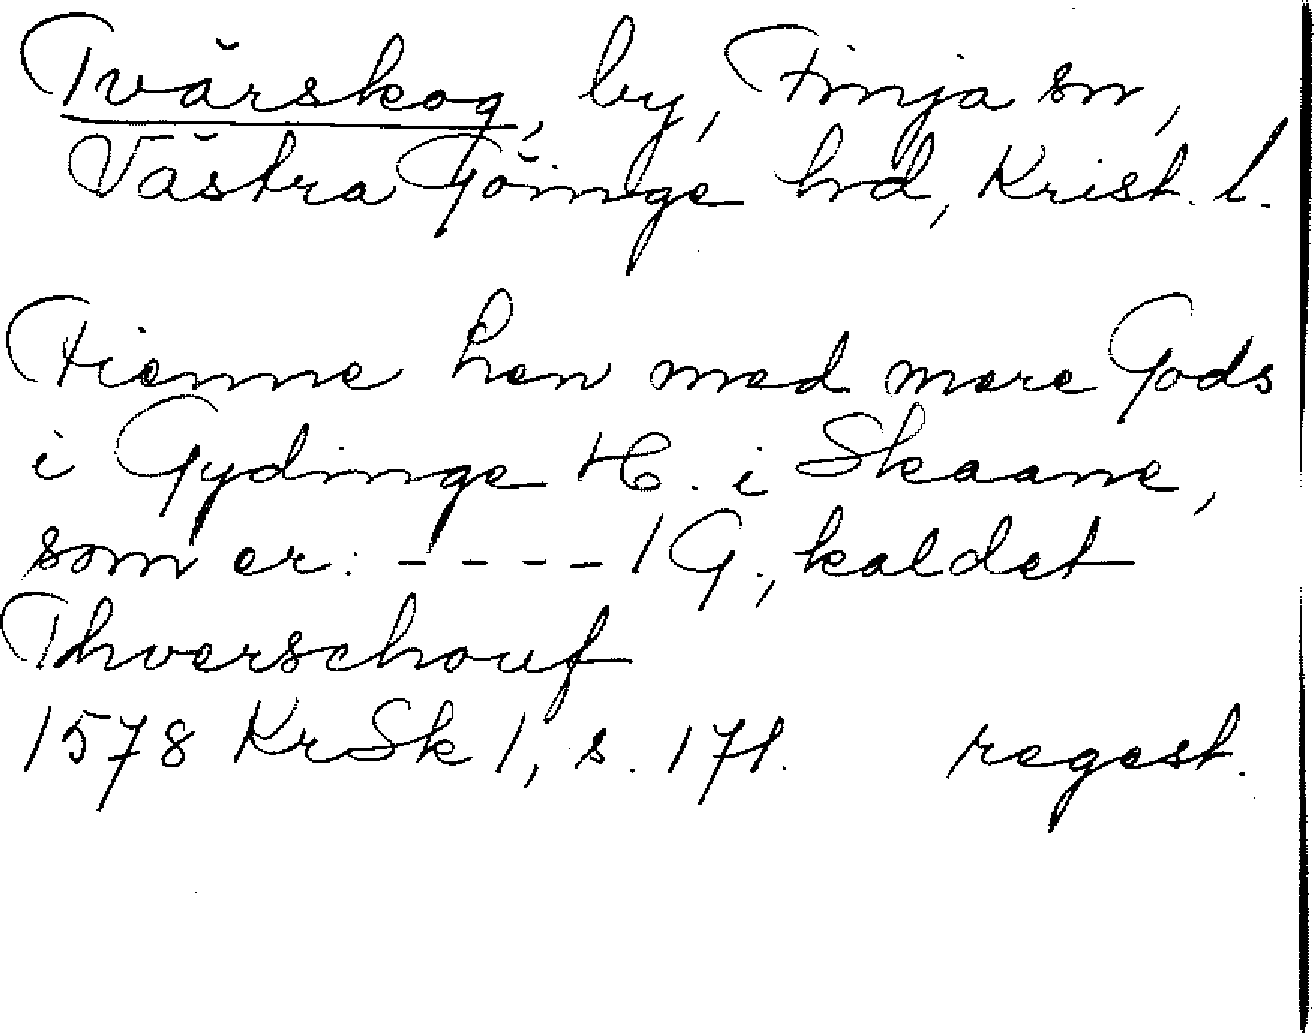 Tvärskog, by, Finja sn,
Västra Göinge hd, Krist. l.
Fienne hen med mere Gods
i Gydinge H. i Skaane,
som er: - - - - 1 G., kaldet
Thverschouf
1578 KrSk 1, s. 171. regest.